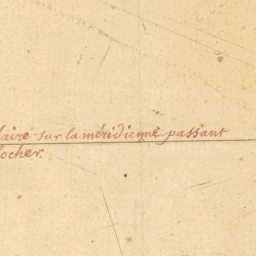 laire sur la méridienne passant
ocher.